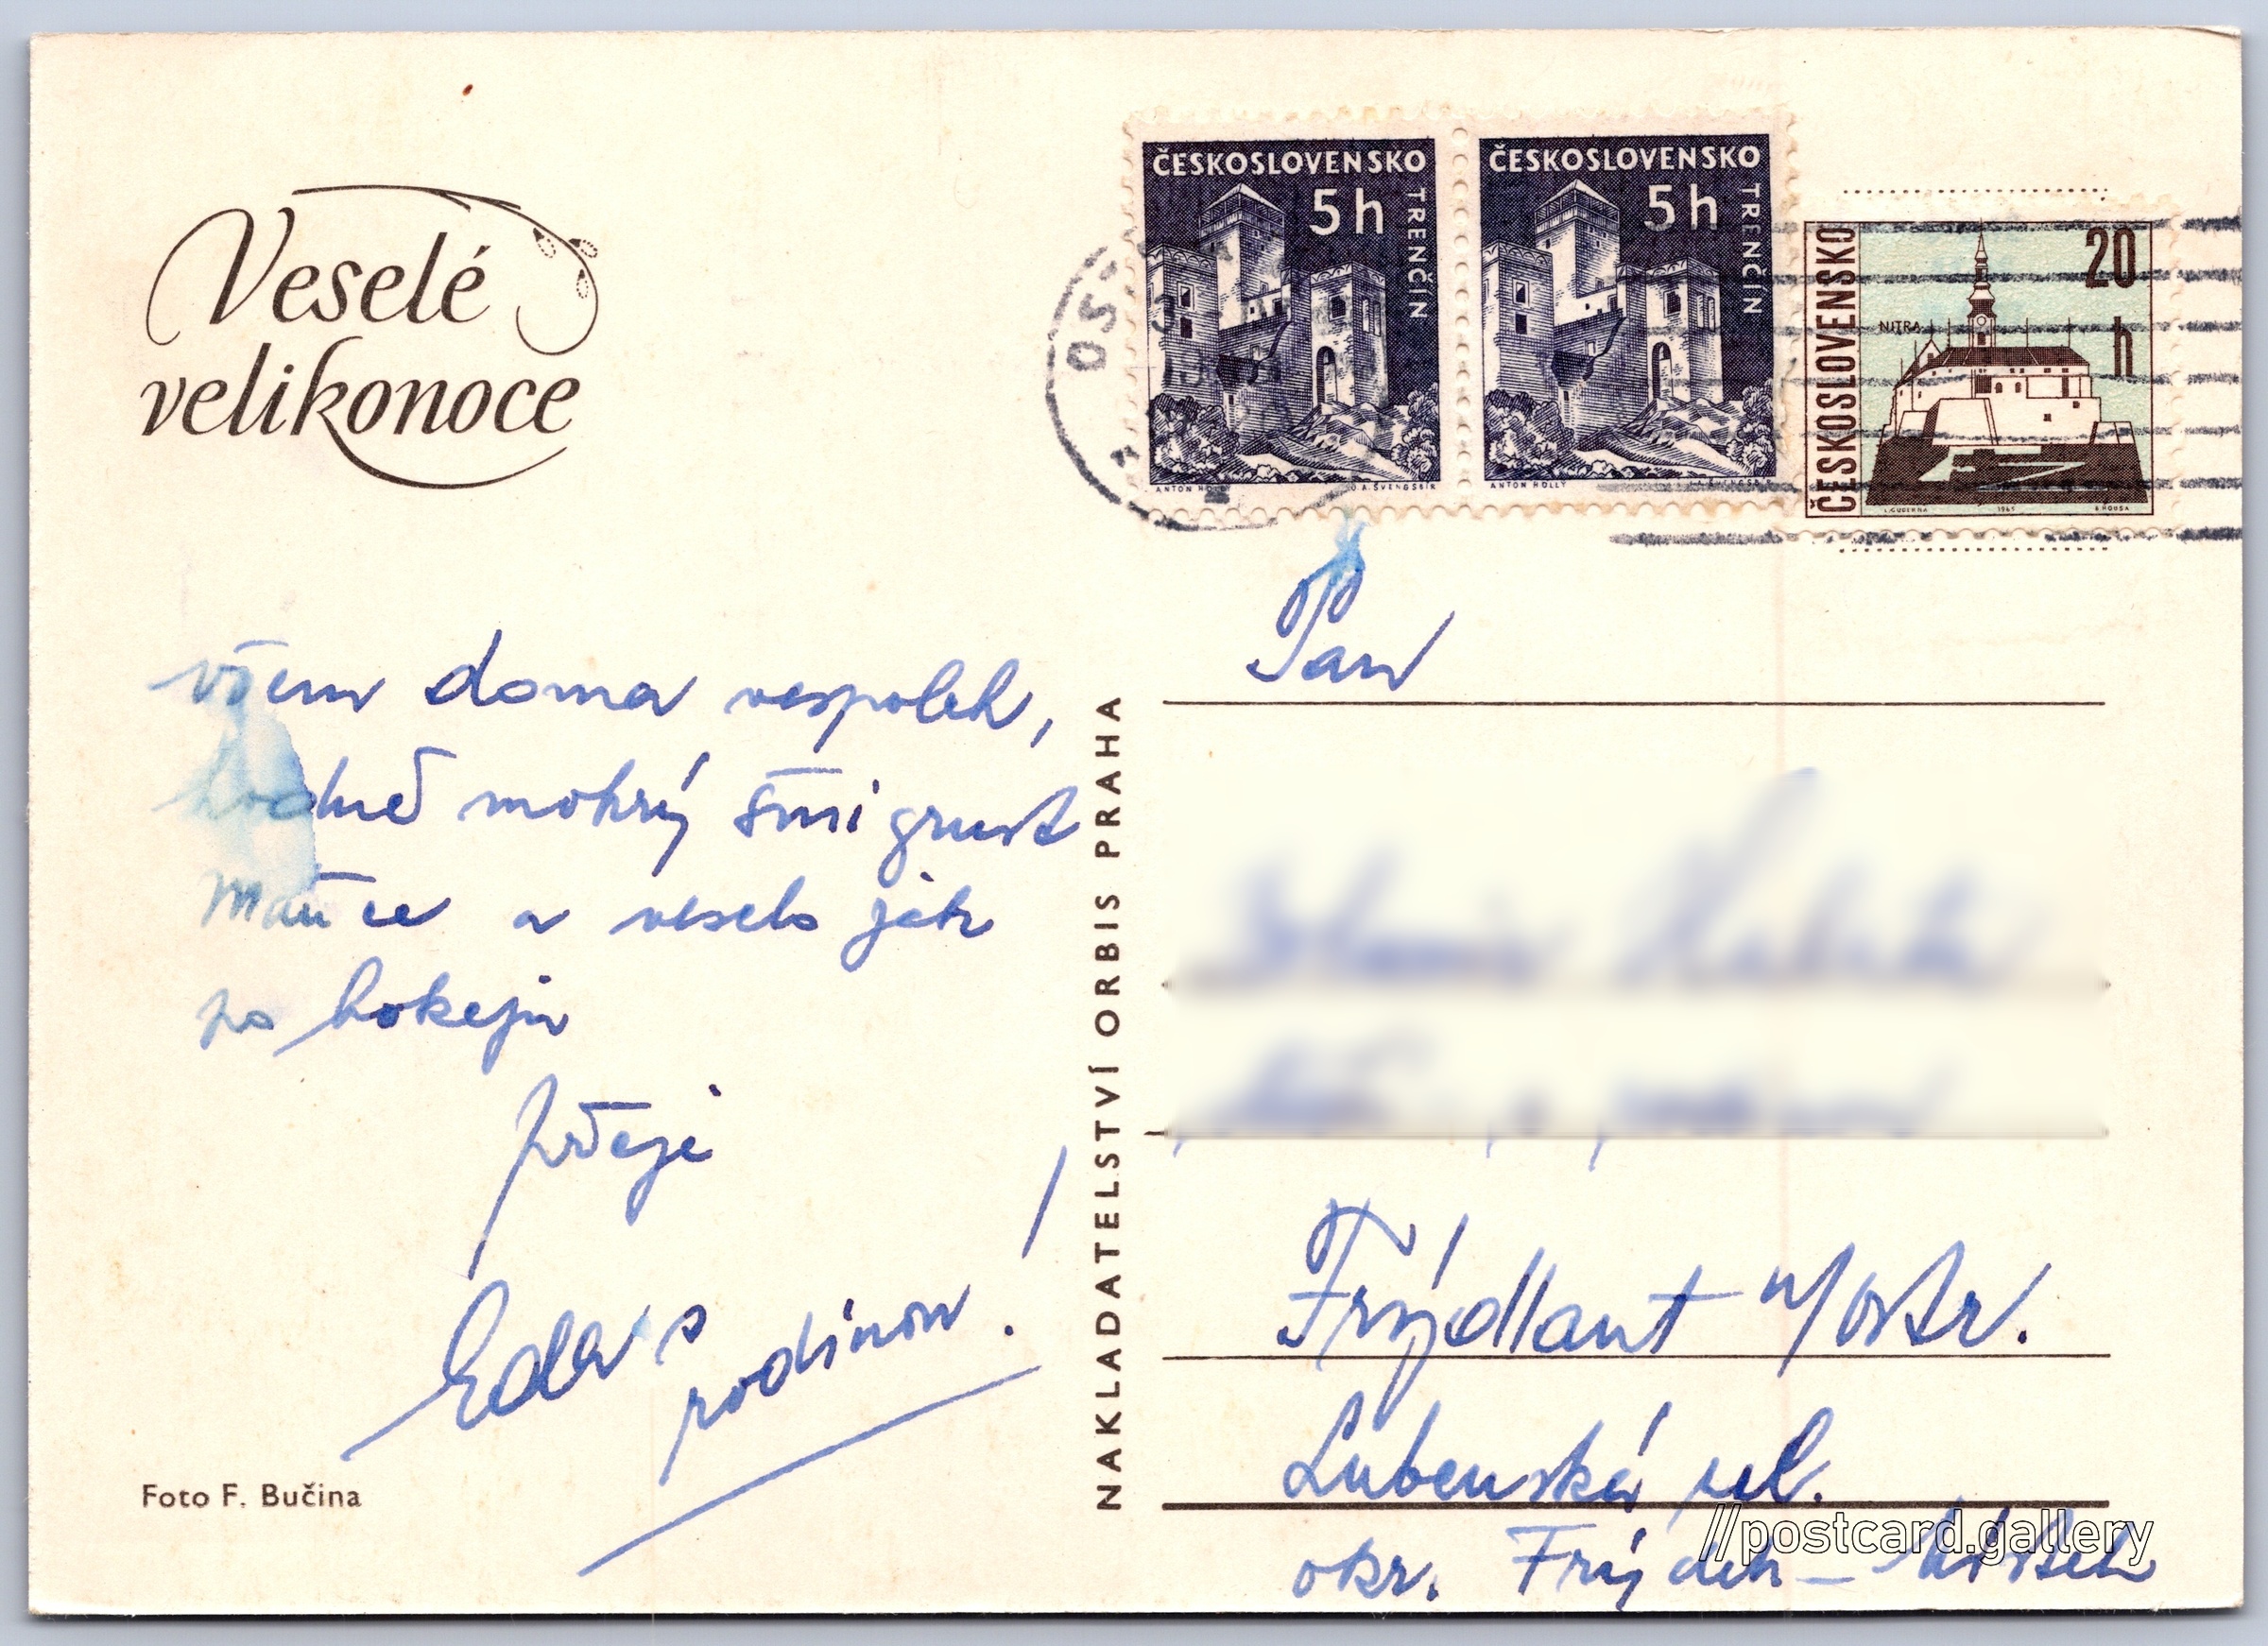 Veselé
velikonoce
ČESKOSLOVENSKO
5h
TRENČÍN
ANTON HOLLÝ
ČESKOSLOVENSKO
5h
TRENČÍN
ANTON HOLLÝ
ČESKOSLOVENSKO
20
h
NITRA
1965
všem doma vespolek,
hodně mokrý šmigrust
Mařce a veselo jak
po hokeji
přeje
Eda s
rodinou!
Foto F. Bučina
NAKLADATELSTVÍ ORBIS PRAHA
Pan
Frýdlant n/Ostr.
Lubenská ul.
okr. Frýdek - Místek
//postcard.gallery